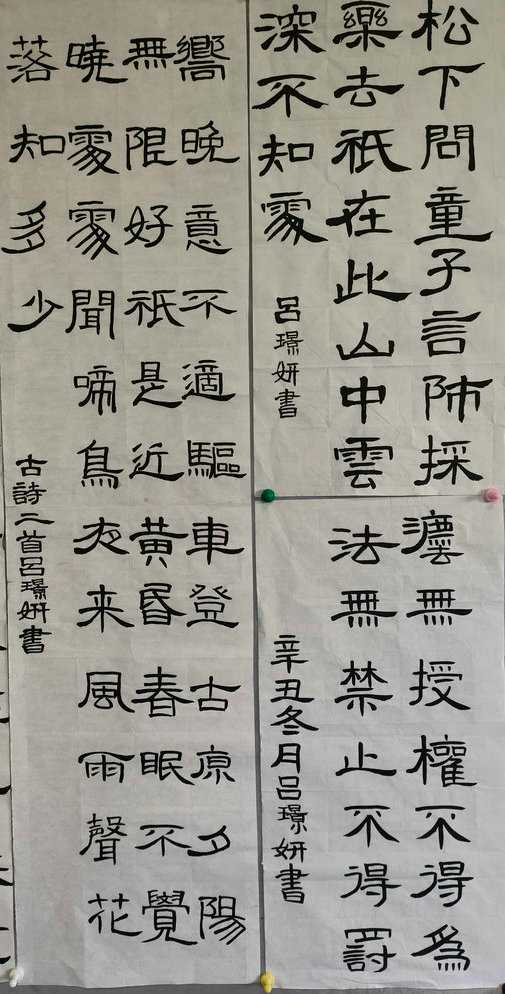 松下問童子言師採
藥去祇在此山中雲
深不知處
呂璟妍書
灋無授權不得為
法無禁止不得罰
辛丑冬月呂璟妍書
嚮晚意不適驅車登古原夕陽
無限好祇是近黃昏春眠不覺
曉處處聞啼鳥夜来風雨聲花
落知多少
古詩二首呂璟妍書